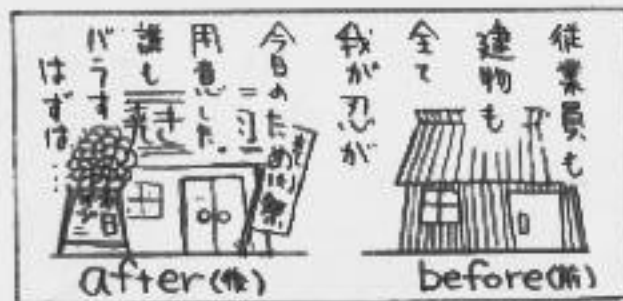 従業員も
建物も
全て
我が忍が
今日のため
用意した
誰も
バラす
はずは…
before(前)
after(後)